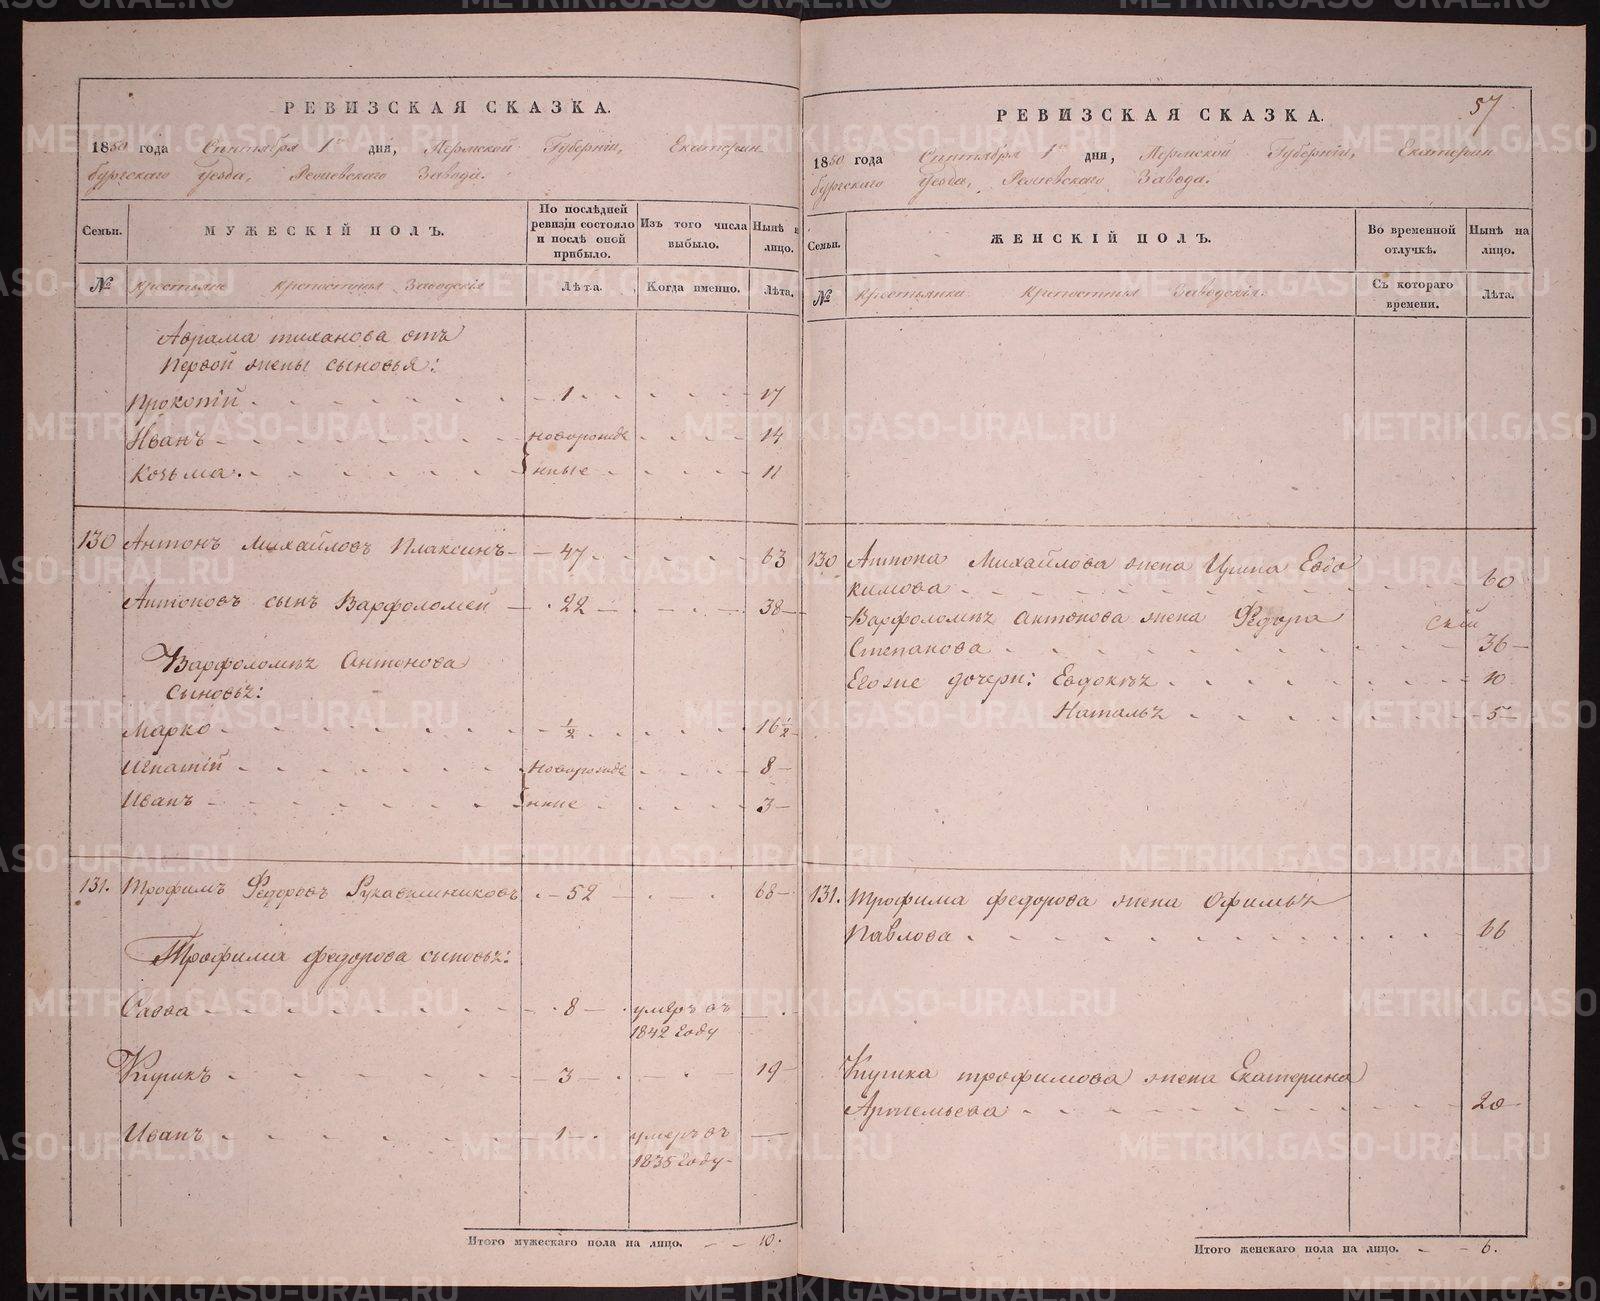 РЕВИЗСКАЯ СКАЗКА.
1850 года Сентября 1го дня, Пермской Губерніи, Екатерин
бургскаго уезда, Режевскаго Завода.
Семьи.
МУЖЕСКІЙ ПОЛЪ.
По послѣдней ревизіи состояло и послѣ оной прибыло.
Изъ того числа выбыло.
Нынѣ на лицо.
№
Крестьяне крепостныя Заводскія
Лѣта.
Когда именно.
Лѣта.
Аврама тиханова отъ
первой жены сыновья:
Прокопій 1 17
Иванъ новорожде 14
Козьма. нные 11
130 Антонъ Михайловъ Плаксинъ 47 63
Антоновъ сынъ Варфоломей 22 38
Варфоломѣя Антонова
сыновья:
Марко ½ 16½
Игнатій новорожде 8
Иванъ нные 3
131. Трофимъ Федоровъ Рукавишниковъ 52 68
Трофима федорова сыновья:
Савва 8 умеръ въ
1842 году
Кирикъ 3 19
Иванъ 1 умеръ въ
1835 году
Итого мужескаго пола на лицо. 10.
57
РЕВИЗСКАЯ СКАЗКА.
1850 года Сентября 1го дня, Пермской Губерніи, Екатерин
бургскаго уезда, Режевскаго Завода.
Семьи.
ЖЕНСКІЙ ПОЛЪ.
Во временной отлучкѣ.
Нынѣ на лицо.
№
Крестьянки Крепостныя Заводскія.
Съ котораго времени.
Лѣта.
130 Антона Михайлова жена Улита Евдо
кимова 60
Варфоломѣя антонова жена Федора
Степанова 36
Егоже дочери: Евдокѣя 10
Наталья 5
131. Трофима федорова жена Офимья
Павлова 66
Кирика трофимова жена Екатерина
Артемьева 20
Итого женскаго пола на лицо. 6.
METRIKI.GASO-URAL.RU